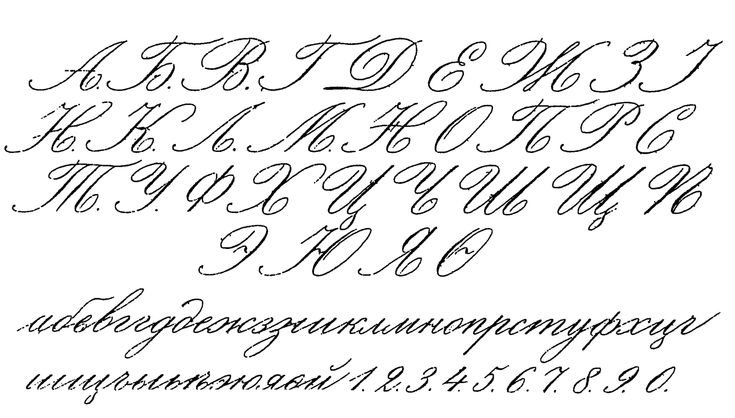 А. Б. В. Г Д Е Ж З І
И. К. Л. М. Н О П Р С
Т. У. Ф Х Ц Ч Ш Щ Ѣ
Э Ю Я Ѳ
абвггддежззиіклмнопрстуфхцч
шщъыьѣэюяѳй 1. 2. 3. 4. 5. 6. 7. 8. 9. 0.